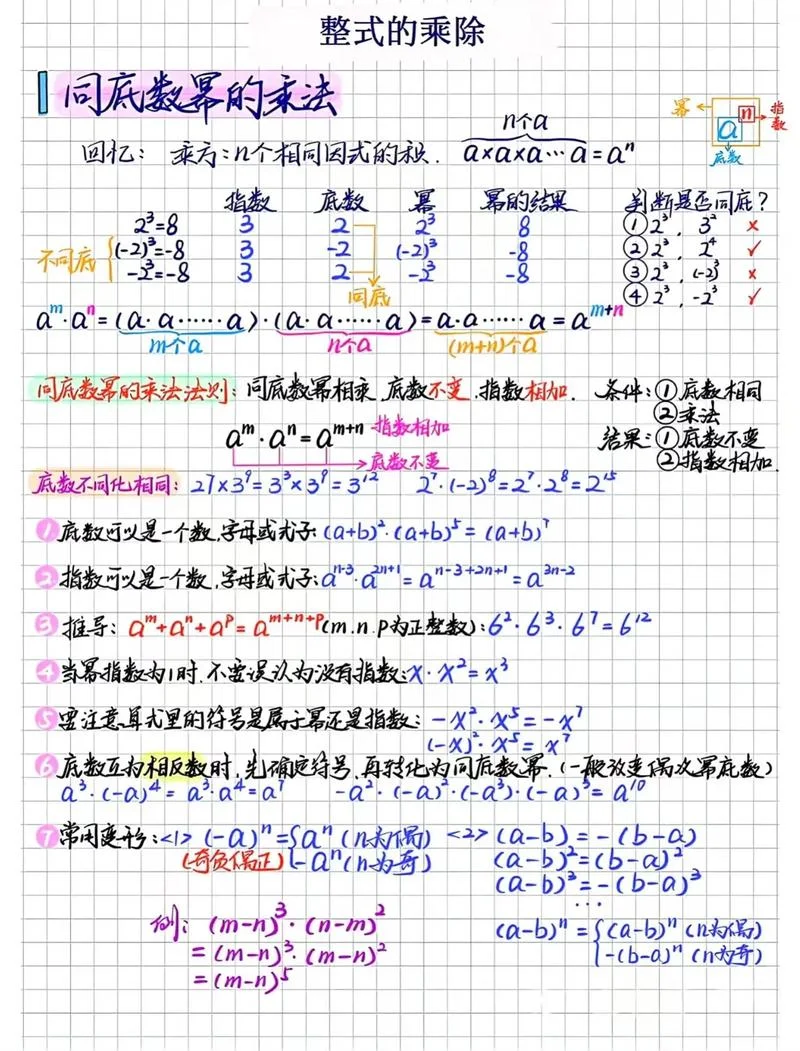 整式的乘除
同底数幂的乘法
幂 a n 指数
底数
回忆： 乘方：n个相同因式的积. a×a×a…a=aⁿ
n个a
指数 底数 幂 幂的结果 判断是否同底？
2³=8 3 2 2³ 8 ① 2³, 3² ×
不同底 (-2)³=-8 3 -2 (-2)³ -8 ② 2³, 2⁴ ✓
-2³=-8 3 2 -2³ -8 ③ 2³, (-2)³ ×
同底 ④ 2³, -2³ ✓
aᵐ·aⁿ=(a·a……a)·(a·a……a)=a·a……a=aᵐ⁺ⁿ
m个a n个a (m+n)个a
同底数幂的乘法法则：同底数幂相乘,底数不变,指数相加. 条件：①底数相同
②乘法
aᵐ·aⁿ=aᵐ⁺ⁿ 指数相加 结果：①底数不变
底数不变 ②指数相加.
底数不同化相同：27×3⁹=3³×3⁹=3¹² 2⁷·(-2)⁸=2⁷·2⁸=2¹⁵
①底数可以是一个数,字母或式子:(a+b)²·(a+b)⁵=(a+b)⁷
②指数可以是一个数,字母或式子:aⁿ⁻³·a²ⁿ⁺¹=aⁿ⁻³⁺²ⁿ⁺¹=a³ⁿ⁻²
③推导：aᵐ+aⁿ+aᵖ=aᵐ⁺ⁿ⁺ᵖ(m.n.p为正整数):6²·6³·6⁷=6¹²
④当幂指数为1时,不要误认为没有指数:x·x²=x³
⑤要注意算式里的符号是属于幂还是指数：-x²·x⁵=-x⁷
(-x)²·x⁵=x⁷
⑥底数互为相反数时,先确定符号,再转化为同底数幂.(一般改变偶次幂底数)
a³·(-a)⁴=a³·a⁴=a⁷ -a²·(-a)²·(-a³)·(-a)³=a¹⁰
⑦常用变形:<1> (-a)ⁿ={aⁿ(n为偶) <2> (a-b)=-(b-a)
(奇负偶正) -aⁿ(n为奇) (a-b)²=(b-a)²
(a-b)³=-(b-a)³
…
例: (m-n)³·(n-m)² (a-b)ⁿ={(a-b)ⁿ(n为偶)
=(m-n)³·(m-n)² -(b-a)ⁿ(n为奇)
=(m-n)⁵